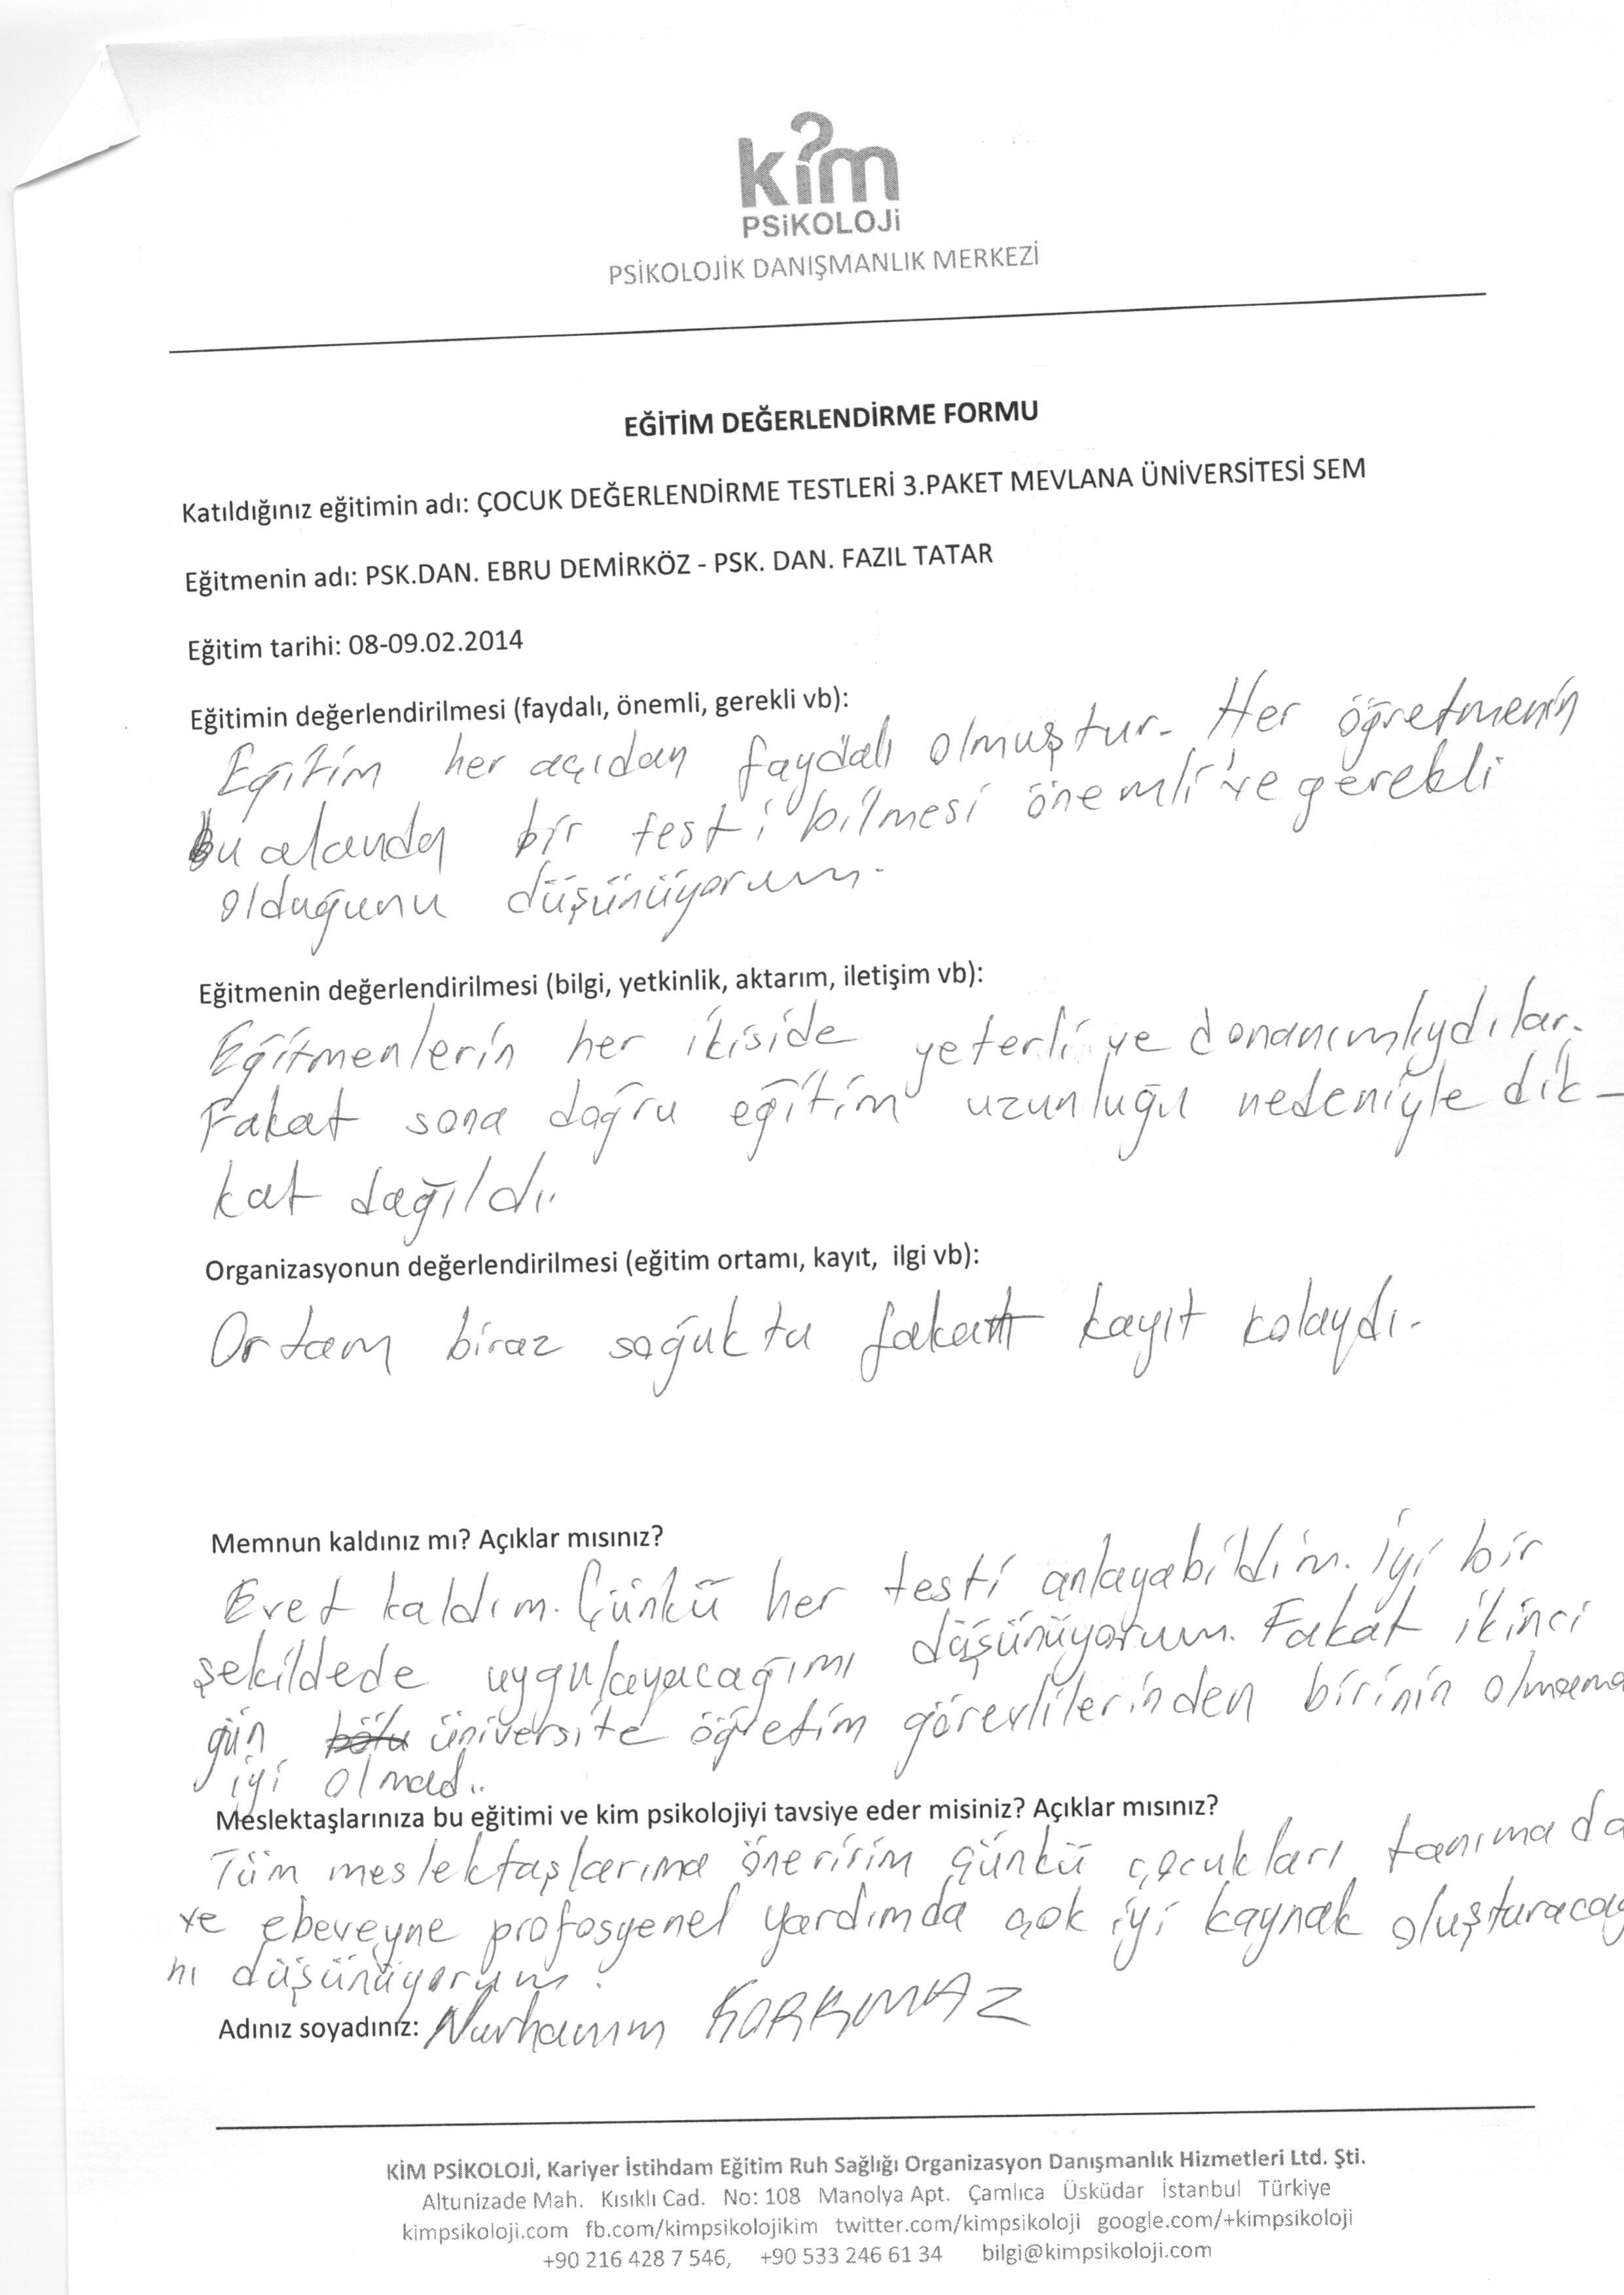 kim
PSiKOLOJi
PSİKOLOJİK DANIŞMANLIK MERKEZİ
EĞİTİM DEĞERLENDİRME FORMU
Katıldığınız eğitimin adı: ÇOCUK DEĞERLENDİRME TESTLERİ 3.PAKET MEVLANA ÜNİVERSİTESİ SEM
Eğitmenin adı: PSK.DAN. EBRU DEMİRKÖZ - PSK. DAN. FAZIL TATAR
Eğitim tarihi: 08-09.02.2014
Eğitimin değerlendirilmesi (faydalı, önemli, gerekli vb):
Eğitim her açıdan faydalı olmuştur. Her öğretmenin
bu alanda bir testi bilmesi önemli ve gerekli
olduğunu düşünüyorum.
Eğitmenin değerlendirilmesi (bilgi, yetkinlik, aktarım, iletişim vb):
Eğitmenlerin her ikiside yeterli ve donanımlıydılar.
Fakat sona doğru eğitim uzunluğu nedeniyle dik-
kat dağıldı.
Organizasyonun değerlendirilmesi (eğitim ortamı, kayıt, ilgi vb):
Ortam biraz soğuktu fakat kayıt kolaydı.
Memnun kaldınız mı? Açıklar mısınız?
Evet kaldım. Çünkü her testi anlayabildim. İyi bir
şekildede uygulayacağımı düşünüyorum. Fakat ikinci
gün üniversite öğretim görevlilerinden birinin olmama
iyi olmadı.
Meslektaşlarınıza bu eğitimi ve kim psikolojiyi tavsiye eder misiniz? Açıklar mısınız?
Tüm meslektaşlarıma öneririm çünkü çocukları tanımada
ve ebeveyne profosyenel yardımda çok iyi kaynak oluşturacağ
nı düşünüyorum.
Adınız soyadınız: Nurhanım KORKMAZ
KİM PSİKOLOJİ, Kariyer İstihdam Eğitim Ruh Sağlığı Organizasyon Danışmanlık Hizmetleri Ltd. Şti.
Altunizade Mah. Kısıklı Cad. No: 108 Manolya Apt. Çamlıca Üsküdar İstanbul Türkiye
kimpsikoloji.com fb.com/kimpsikolojikim twitter.com/kimpsikoloji google.com/+kimpsikoloji
+90 216 428 7 546, +90 533 246 61 34 bilgi@kimpsikoloji.com